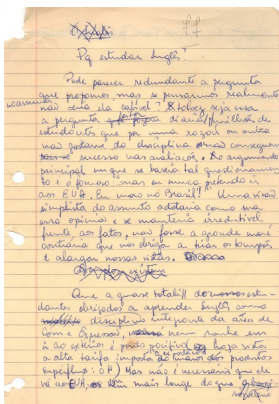 Pq estudar Inglês?
Pode parecer redundante a pergunta
que propomos, mas se pensarmos realmente
não seria da cabível? Talvez seja essa
a pergunta feita por milhões de
estudantes que por uma razão ou outra
não gostaram da disciplina e não conseguem
sucesso nas avaliações. O argumento
principal em que se baseia tal questionamen-
to é o famoso: mas eu nunca pretendo ir
aos EUA. Eu moro no Brasil! Uma visão
simplista do assunto adotaria como sua
essa opinião e se manteria irredutível
frente aos fatos, não fosse a grande
contrária que nos obriga a tirar os tampos
e alargar nossas vistas.
Que a quase totalidade dos nossos estu-
dantes obrigados a aprender Inglês como
disciplina integrante da área de
Com. e Expressão, nem sonhe em
ir ao exterior é ponto positivo, haja vista
a alta tarifa imposta
Mas não é necessário que ele
vá aos EUA, mais longe do que